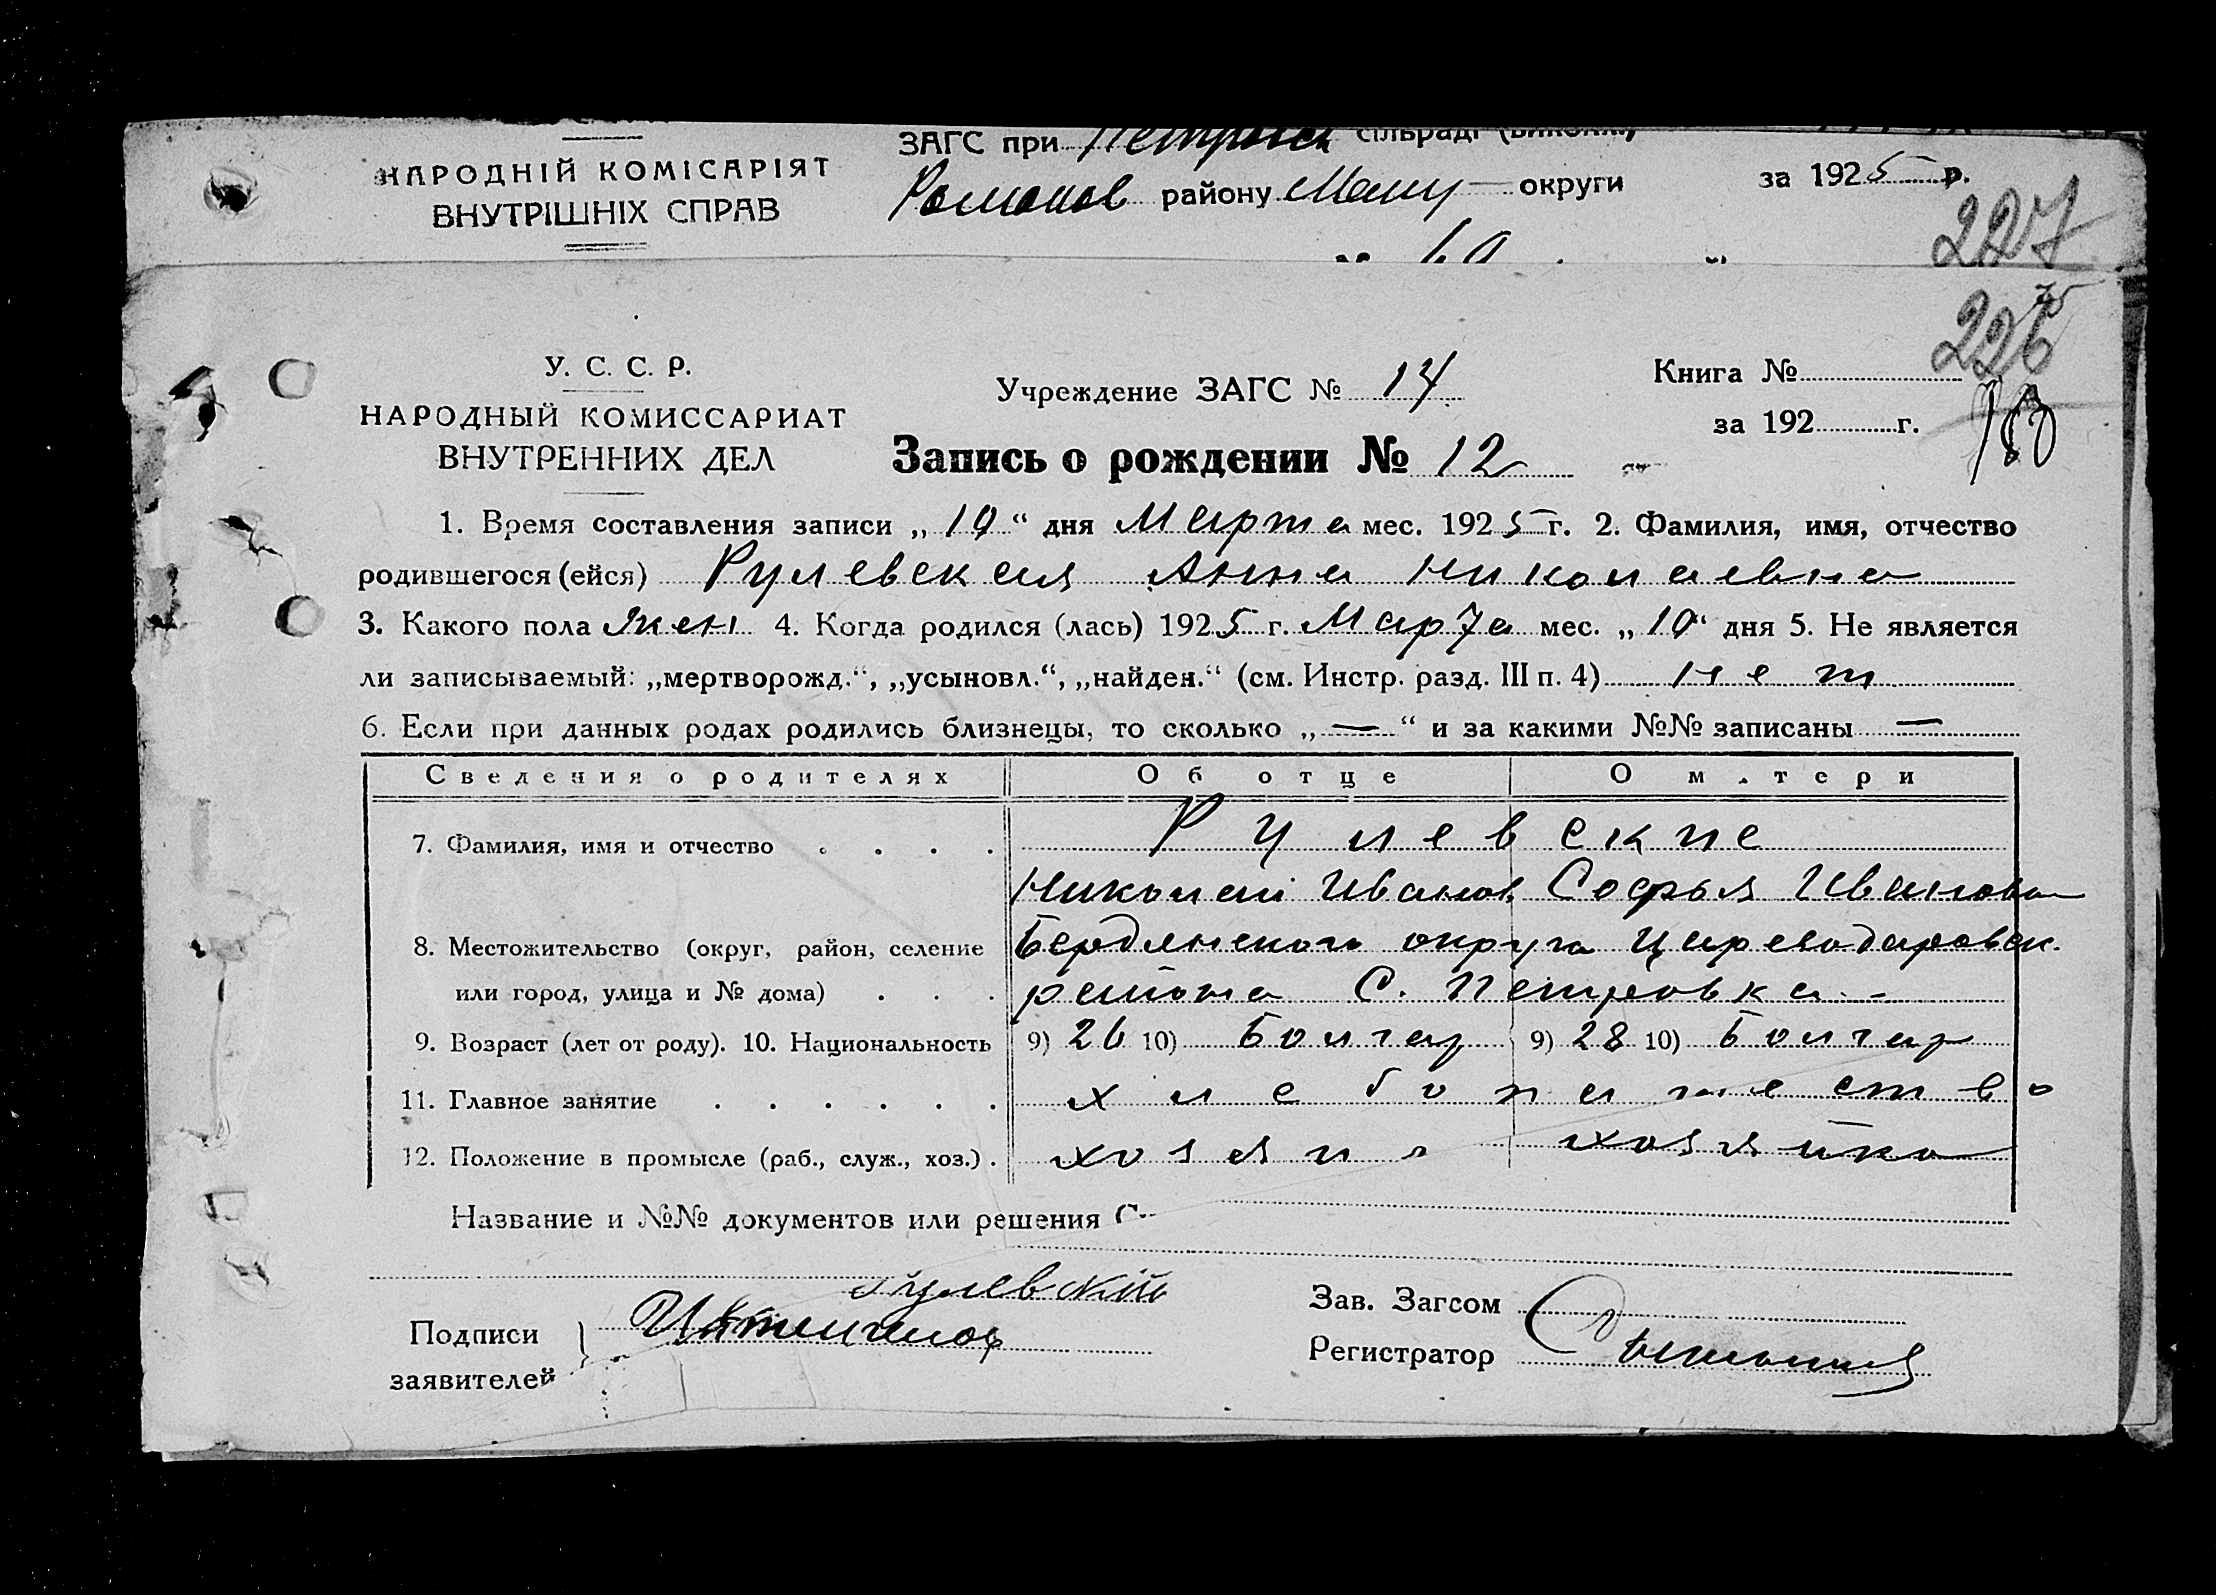 НАРОДНІЙ КОМІСАРІЯТ
ВНУТРІШНІХ СПРАВ
ЗАГС при Петровск сільраді
Романов району округи
за 1925 р.
227
226
У. С. С. Р.
НАРОДНЫЙ КОМИССАРИАТ
ВНУТРЕННИХ ДЕЛ
Учреждение ЗАГС № 14
Книга №
за 192 г.
Запись о рождении № 12
1. Время составления записи „10“ дня Марта мес. 1925 г. 2. Фамилия, имя, отчество
родившегося (ейся) Рулевская Анна Николаевна
3. Какого пола жен 4. Когда родился (лась) 1925 г. Марта мес. „10“ дня 5. Не является
ли записываемый: „мертворожд.“, „усыновл.“, „найден.“ (см. Инстр. разд. III п. 4) нет
6. Если при данных родах родились близнецы, то сколько „—“ и за какими №№ записаны —
Сведения о родителях Об отце О матери
7. Фамилия, имя и отчество Рулевские
Николай Иванов Софья Иванова
8. Местожительство (округ, район, селение Бердянского округа Цареводаровск.
или город, улица и № дома) района С. Петровка
9. Возраст (лет от роду). 10. Национальность 9) 26 10) Болгар 9) 28 10) Болгар
11. Главное занятие хлебопашество
12. Положение в промысле (раб., служ., хоз.) хозяин хозяйка
Название и №№ документов или решения С
Рулевский
Подписи
заявителей
Зав. Загсом
Регистратор